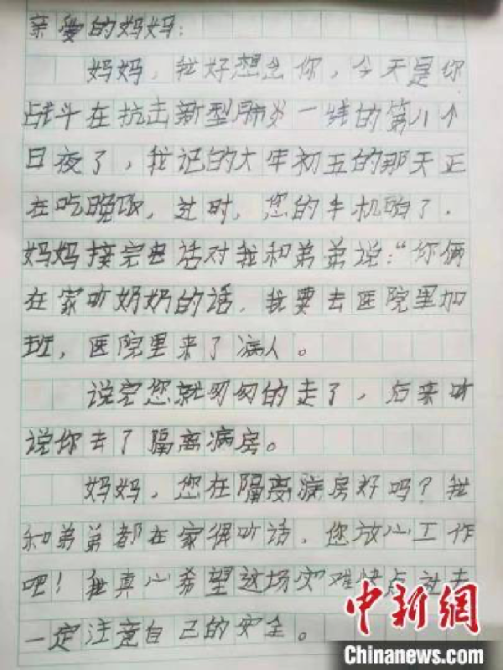 亲爱的妈妈:
妈妈,我好想念你,今天是你
战斗在抗击新型肺炎一线的第八个
日夜了,我记的大年初五的那天正
在吃晚饭,这时,您的手机响了.
妈妈接完电话对我和弟弟说:“你俩
在家听奶奶的话,我要去医院里加
班,医院里来了病人。
说完您就匆匆的走了,后来听
说你去了隔离病房。
妈妈,您在隔离病房好吗?我
和弟弟都在家得听话,您放心工作
吧!我真心希望这场灾难快点过去
一定注意自己的安全。
中新网
Chinanews.com